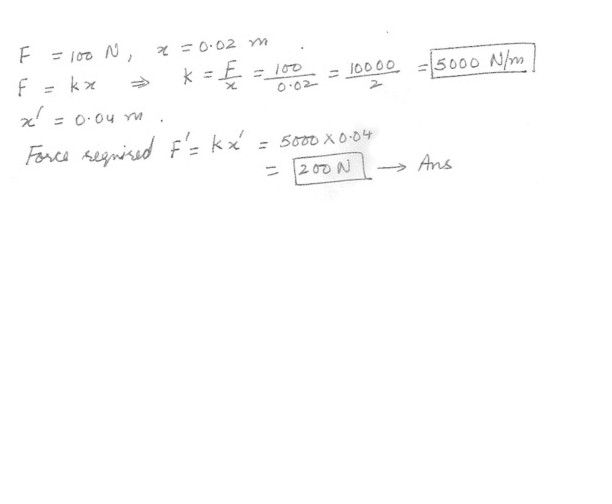 F = 100 N, x = 0.02 m .
F = kx ⇒ k = F/x = 100/0.02 = 10000/2 = 5000 N/m
x' = 0.04 m .
Force required F' = kx' = 5000 × 0.04
= 200 N → Ans